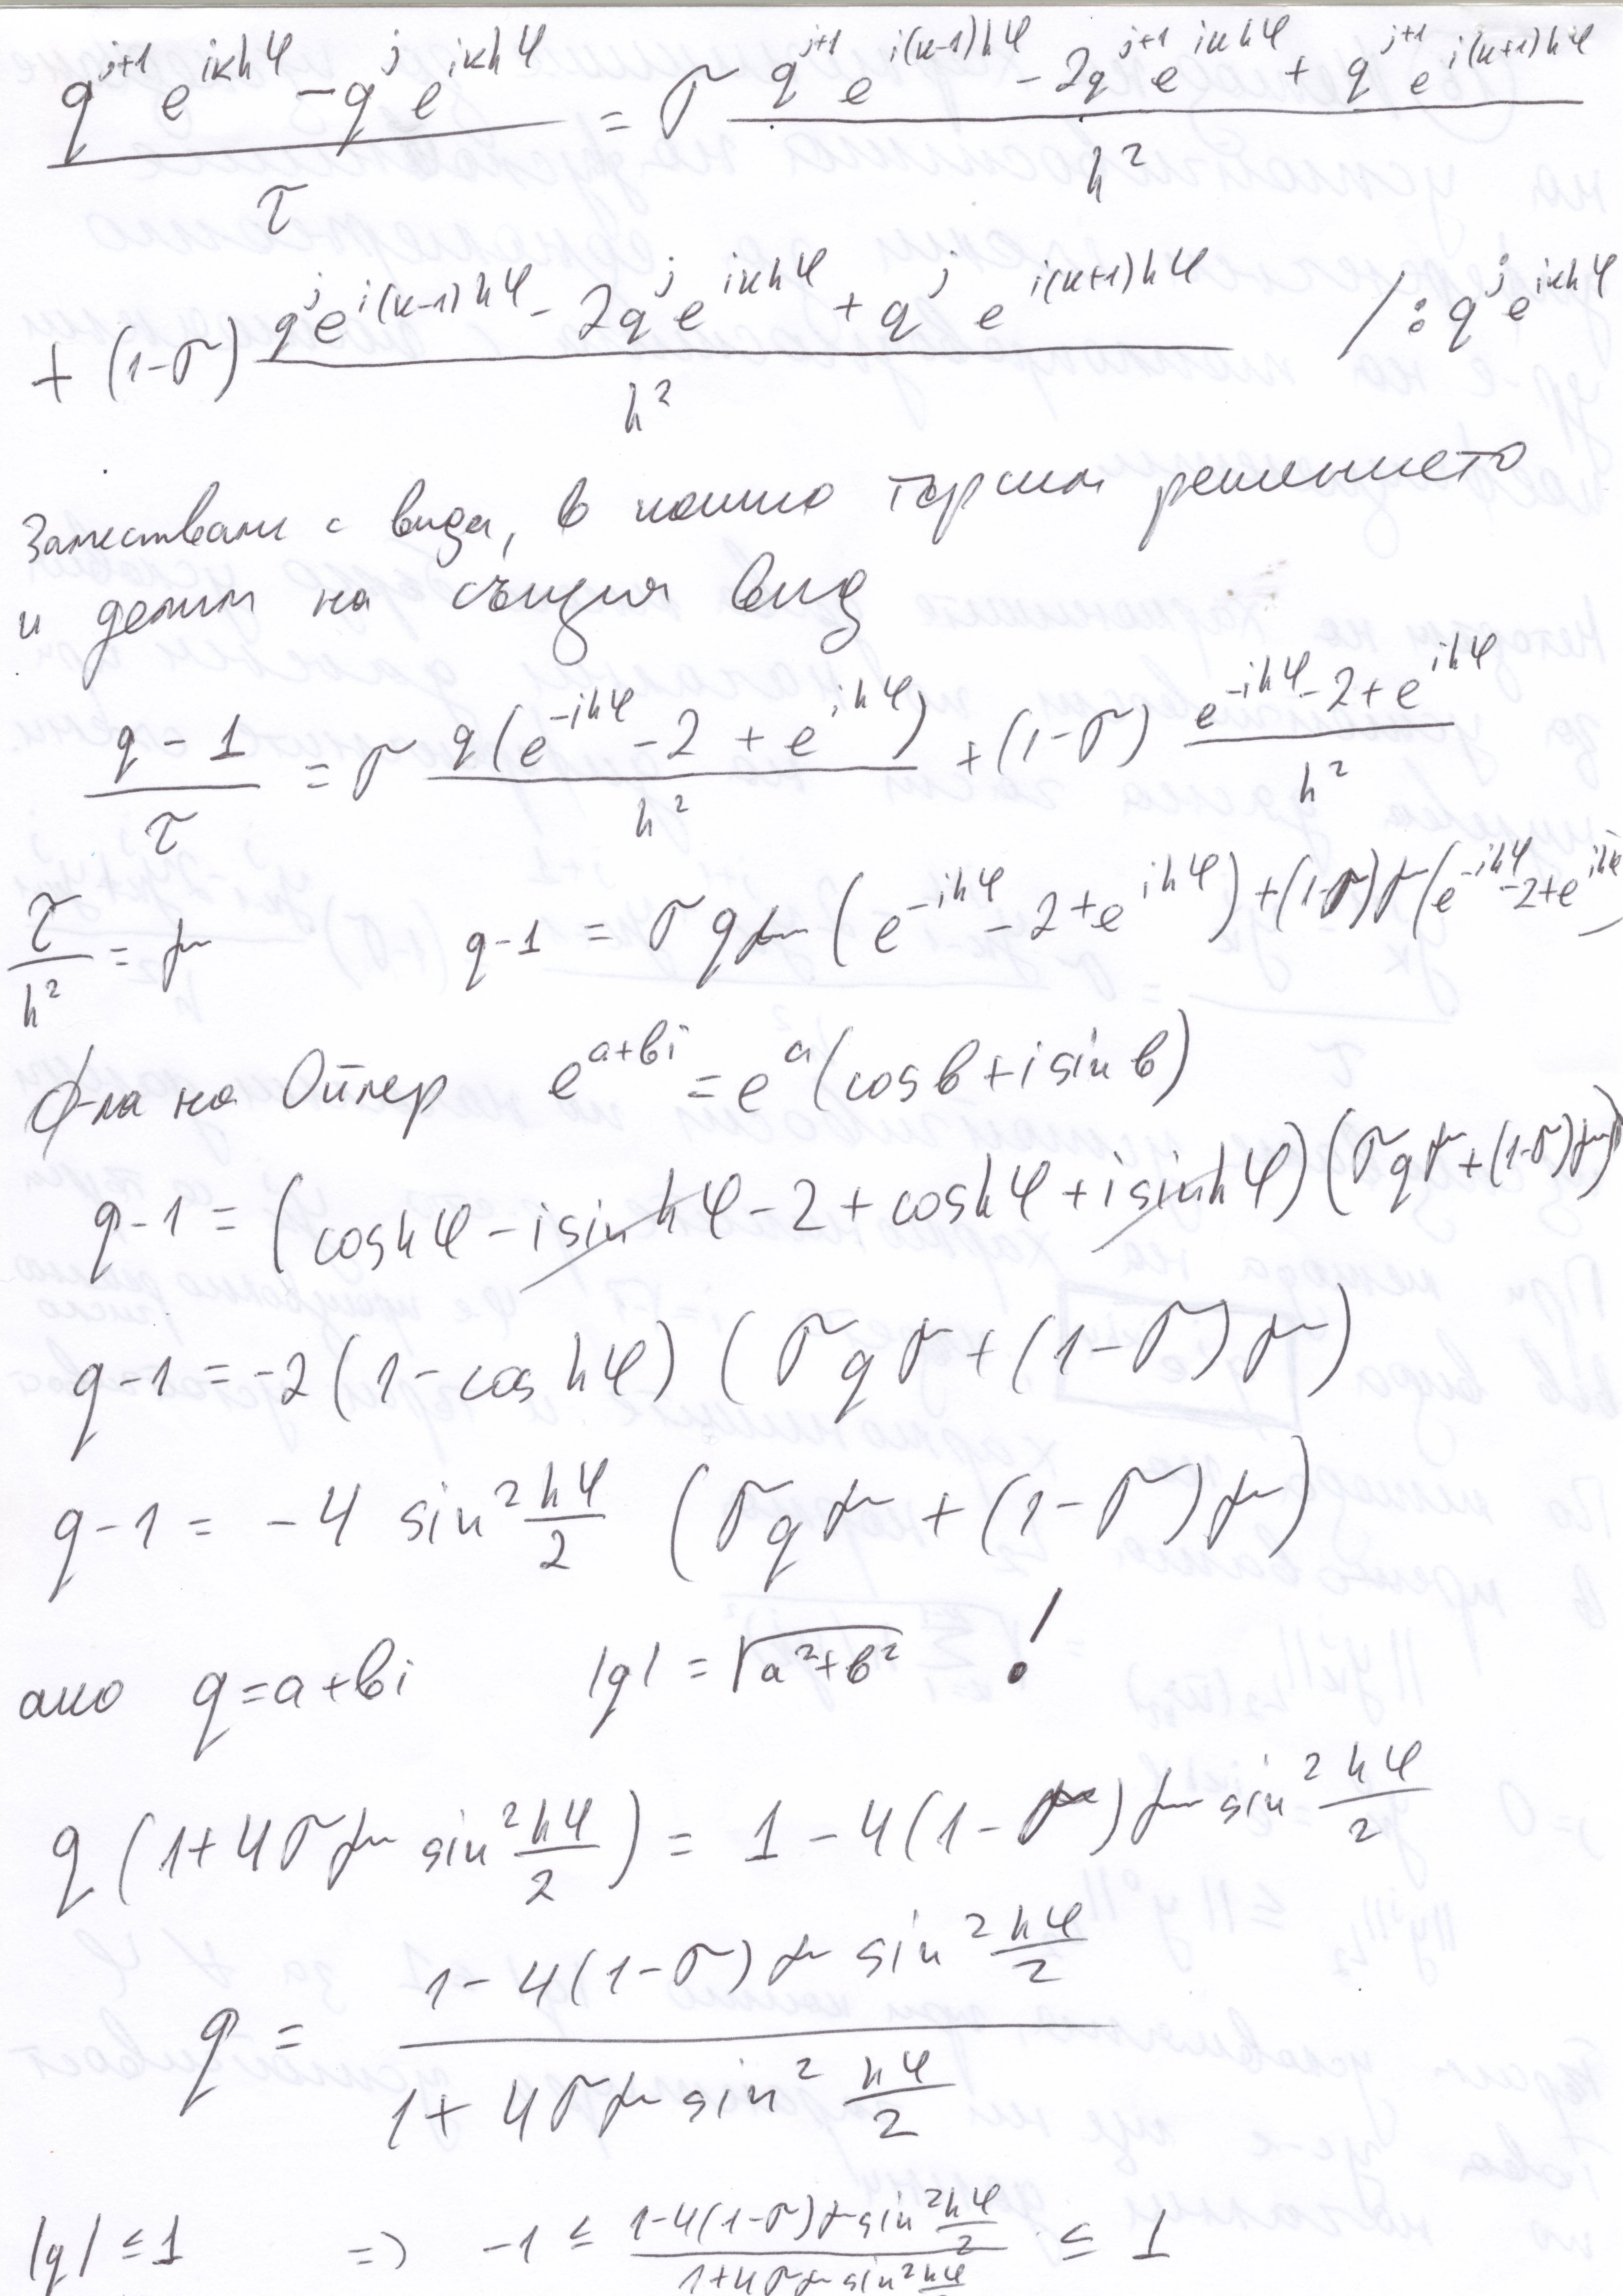 (q^{j+1} e^{ikhφ} - q^j e^{ikhφ})/τ = σ (q^{j+1} e^{i(k-1)hφ} - 2q^{j+1} e^{ikhφ} + q^{j+1} e^{i(k+1)hφ})/h²
+ (1-σ) (q^j e^{i(k-1)hφ} - 2q^j e^{ikhφ} + q^j e^{i(k+1)hφ})/h² /: q^j e^{ikhφ}
Заместваме с вида, в който търсим решението
и делим на същия вид
(q - 1)/τ = σ q(e^{-ihφ} - 2 + e^{ihφ})/h² + (1-σ) (e^{-ihφ} - 2 + e^{ihφ})/h²
τ/h² = μ q-1 = σqμ (e^{-ihφ} - 2 + e^{ihφ}) + (1-σ)μ(e^{-ihφ} - 2 + e^{ihφ})
ф-ла на Ойлер e^{a+bi} = e^a (cos b + i sin b)
q-1 = (cos hφ - i sin hφ - 2 + cos hφ + i sin hφ) (σqμ + (1-σ)μ)
q-1 = -2(1 - cos hφ) (σqμ + (1-σ)μ)
q-1 = -4 sin² hφ/2 (σqμ + (1-σ)μ)
ако q = a+bi |q| = √(a²+b²) !
q(1+4σμ sin² hφ/2) = 1 - 4(1-σ)μ sin² hφ/2
q = (1-4(1-σ)μ sin² hφ/2)/(1+4σμ sin² hφ/2)
|q| ≤ 1 => -1 ≤ (1-4(1-σ)μ sin² hφ/2)/(1+4σμ sin² hφ/2) ≤ 1